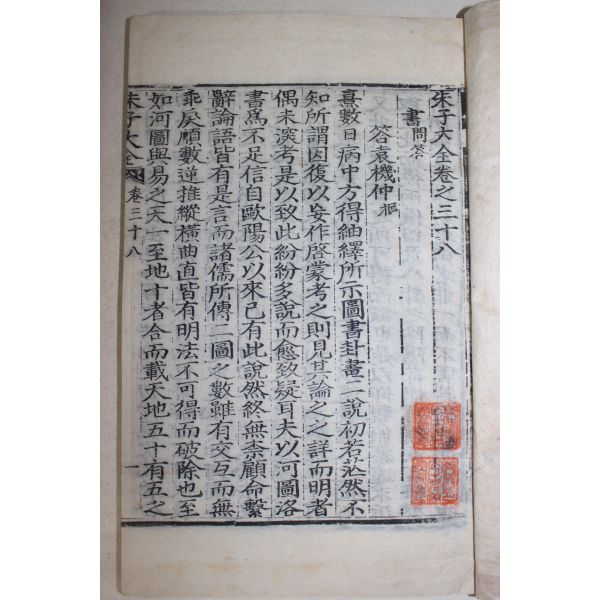 朱子大全卷之三十八
書問答
答袁機仲樞
熹數日病中方得紬繹所示圖書卦畫二說初若茫然不
知所謂因復以妄作啓蒙考之則見其論之之詳而明者
偶未深考是以致此紛紛多說而愈致疑耳夫以河圖洛
書爲不足信自歐陽公以來已有此說然終無柰顧命繫
辭論語皆有是言而諸儒所傳二圖之數雖有交互而無
乖戾順數逆推縱橫曲直皆有明法不可得而破除也至
如河圖與易之天一至地十者合而載天地五十有五之
朱子大全
卷三十八
一